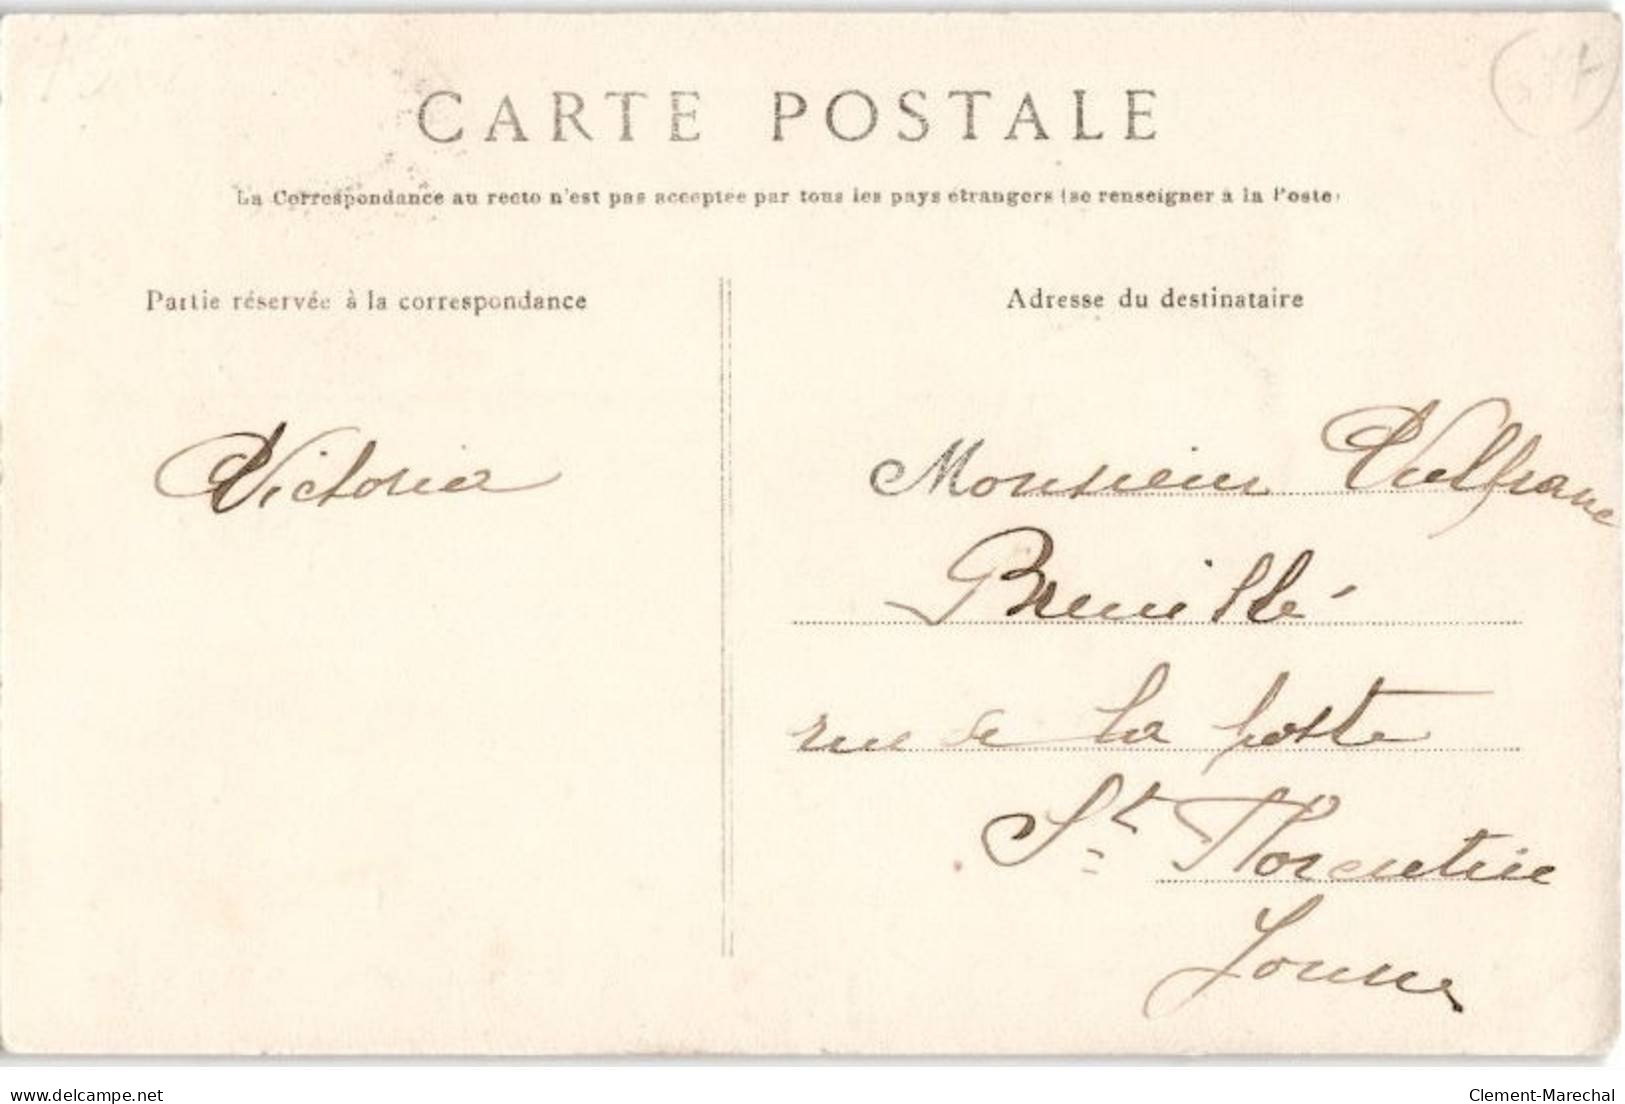 CARTE POSTALE
La Correspondance au recto n'est pas acceptée par tous les pays étrangers (se renseigner à la Poste)
Partie réservée à la correspondance
Adresse du destinataire
Victoria
Monsieur Vulfranc
Breuillé
rue de la poste
St Florentin
Yonne
delcampe.net
Clement-Marechal